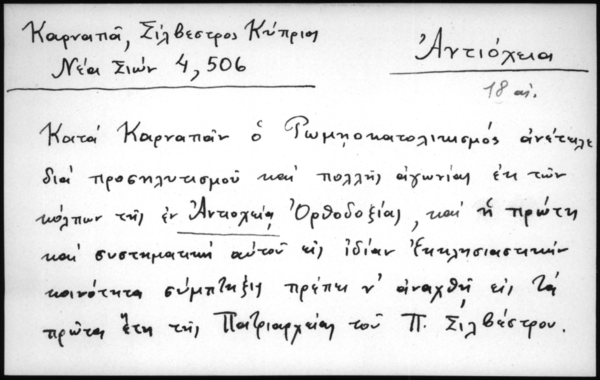 Καρναπᾶ, Σίλβεστρος Κύπριος
Νέα Σιών 4, 506
Ἀντιόχεια
18 αἰ.
Κατά Καρναπᾶν ὁ Ρωμηοκατολικισμός ἀνέτειλε
διά προσηλυτισμοῦ καί πολλῆς ἀγωνίας ἐκ τῶν
κόλπων τῆς ἐν Ἀντιοχείᾳ Ὀρθοδοξίας, καί ἡ πρώτη
καί συστηματική αὐτοῦ εἰς ἰδίαν Ἐκκλησιαστικήν
κοινότητα σύμπτηξις πρέπει ν' ἀναχθῇ εἰς τά
πρῶτα ἔτη τῆς Πατριαρχείας τοῦ Π. Σιλβέστρου.